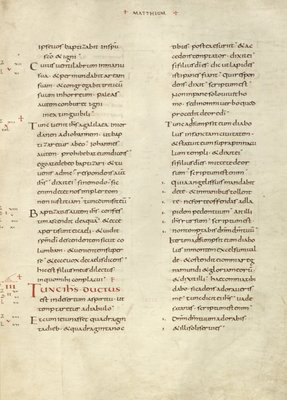 + MATTHEUM +
ipseuos baptizabit inspu
sco & igni
Cuius uentilabrum inmanu
sua · & permundabit aream
suam · & congregabit triticu
suum inhorreum · paleas
autem conburet igni
inextinguibili
Tunc uenit ihs agalilaea inior
danen adiohannem · ut bap
tizaretur abeo · iohannes
autem prohibebat eum dicens
ego atedebeo baptizari · & tu
uenis adme · respondens aut
ihs · dixit ei · sinemodo · sic
enim dec& nos implere om
nem iustitiam · tunc dimisit eu
Baptizatus autem ihs · confes
tim ascendit deaqua · & ecce
aperti sunt caeli · & uidit
spm di descendentem sicut co
lumbam · & uenientem super
se · & ecce uox decaelis dicens
hic est filius meus dilectus
inquo mihi complacui
III
Tunc ihs ductus
est indesertum aspu · ut
temptaretur adiabolo
Et cum ieiunass& quadragin
ta dieb · & quadraginta noc
tibus · postea esuriit · & ac
cedens temptator · dixit ei
si filius di es · dic ut lapides
isti panes fiant · qui respon
dens dixit · scriptum est
non inpane solo uiuit ho
mo · sed inomni uerbo quod
procedit deore di
Tunc adsumpsit eum diabo
lus insanctam ciuitatem
& statuit eum supra pinnacu
lum templi · & dixit ei
si filius di es · mitte te deor
sum · scriptum est enim
quia angelis suis mandabit
dete · & inmanibus tollent
te · ne forte offendas adla
pidem pedem tuum · ait illi
ihs rursum · scriptum est
non temptabis dnm dm tuum
Iterum adsumpsit eum diabo
lus inmontem excelsum ual
de · & ostendit ei omnia reg
na mundi · & gloriam eorum
& dixit illi · haec omnia tibi
dabo · si cadens adoraueris
me · tunc dicit ei ihs · uade
satanas · scriptum est enim
Dnm dm tuum adorabis
& illi soli seruies